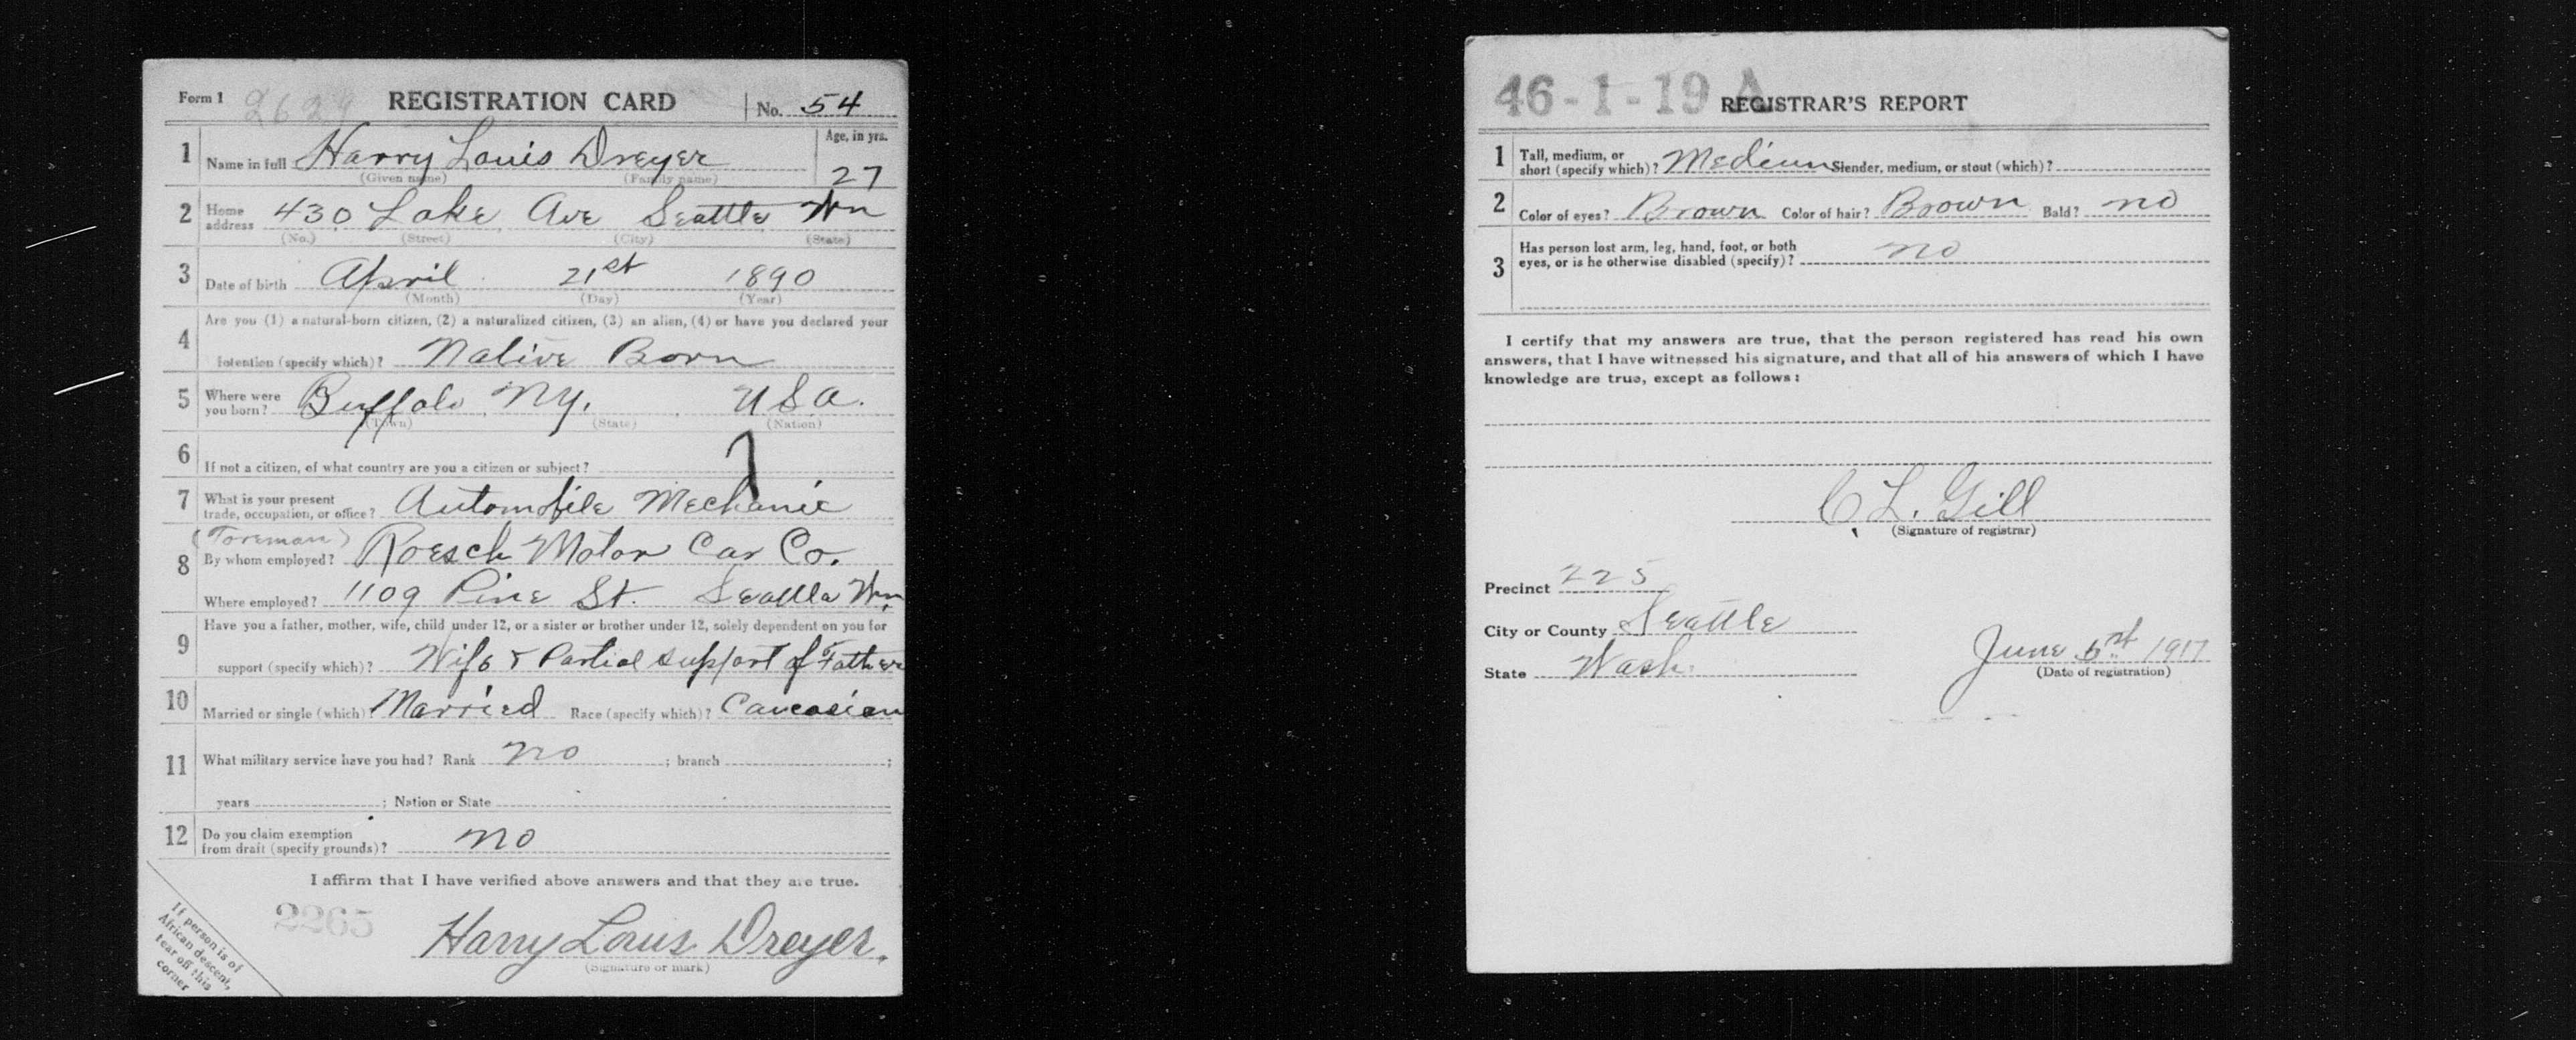 Form 1 2629 REGISTRATION CARD No. 54
1 Name in full Harry Louis Dreyer Age, in yrs.
(Given name) (Family name) 27
2 Home address 430 Lake Ave Seattle Wn
(No.) (Street) (City) (State)
3 Date of birth April 21st 1890
(Month) (Day) (Year)
4 Are you (1) a natural-born citizen, (2) a naturalized citizen, (3) an alien, (4) or have you declared your
intention (specify which)? Native Born
5 Where were you born? Buffalo N.Y. U.S.A.
(Town) (State) (Nation)
6 If not a citizen, of what country are you a citizen or subject?
7 What is your present trade, occupation, or office? Automobile Mechanic
(Foreman)
8 By whom employed? Roesch Motor Car Co.
Where employed? 1109 Pine St. Seattle Wn.
9 Have you a father, mother, wife, child under 12, or a sister or brother under 12, solely dependent on you for
support (specify which)? Wife & Partial support of Father
10 Married or single (which)? Married Race (specify which)? Caucasian
11 What military service have you had? Rank no ; branch ;
years ; Nation or State
12 Do you claim exemption from draft (specify grounds)? no
I affirm that I have verified above answers and that they are true.
2265
Harry Louis Dreyer.
(Signature or mark)
If person is of
African descent,
tear off this
corner
46-1-19 A REGISTRAR'S REPORT
1 Tall, medium, or short (specify which)? Medium Slender, medium, or stout (which)?
2 Color of eyes? Brown Color of hair? Brown Bald? no
3 Has person lost arm, leg, hand, foot, or both
eyes, or is he otherwise disabled (specify)? no
I certify that my answers are true, that the person registered has read his own
answers, that I have witnessed his signature, and that all of his answers of which I have
knowledge are true, except as follows:
C. L. Gill
(Signature of registrar)
Precinct 225
City or County Seattle
State Wash. June 5 1917
(Date of registration)